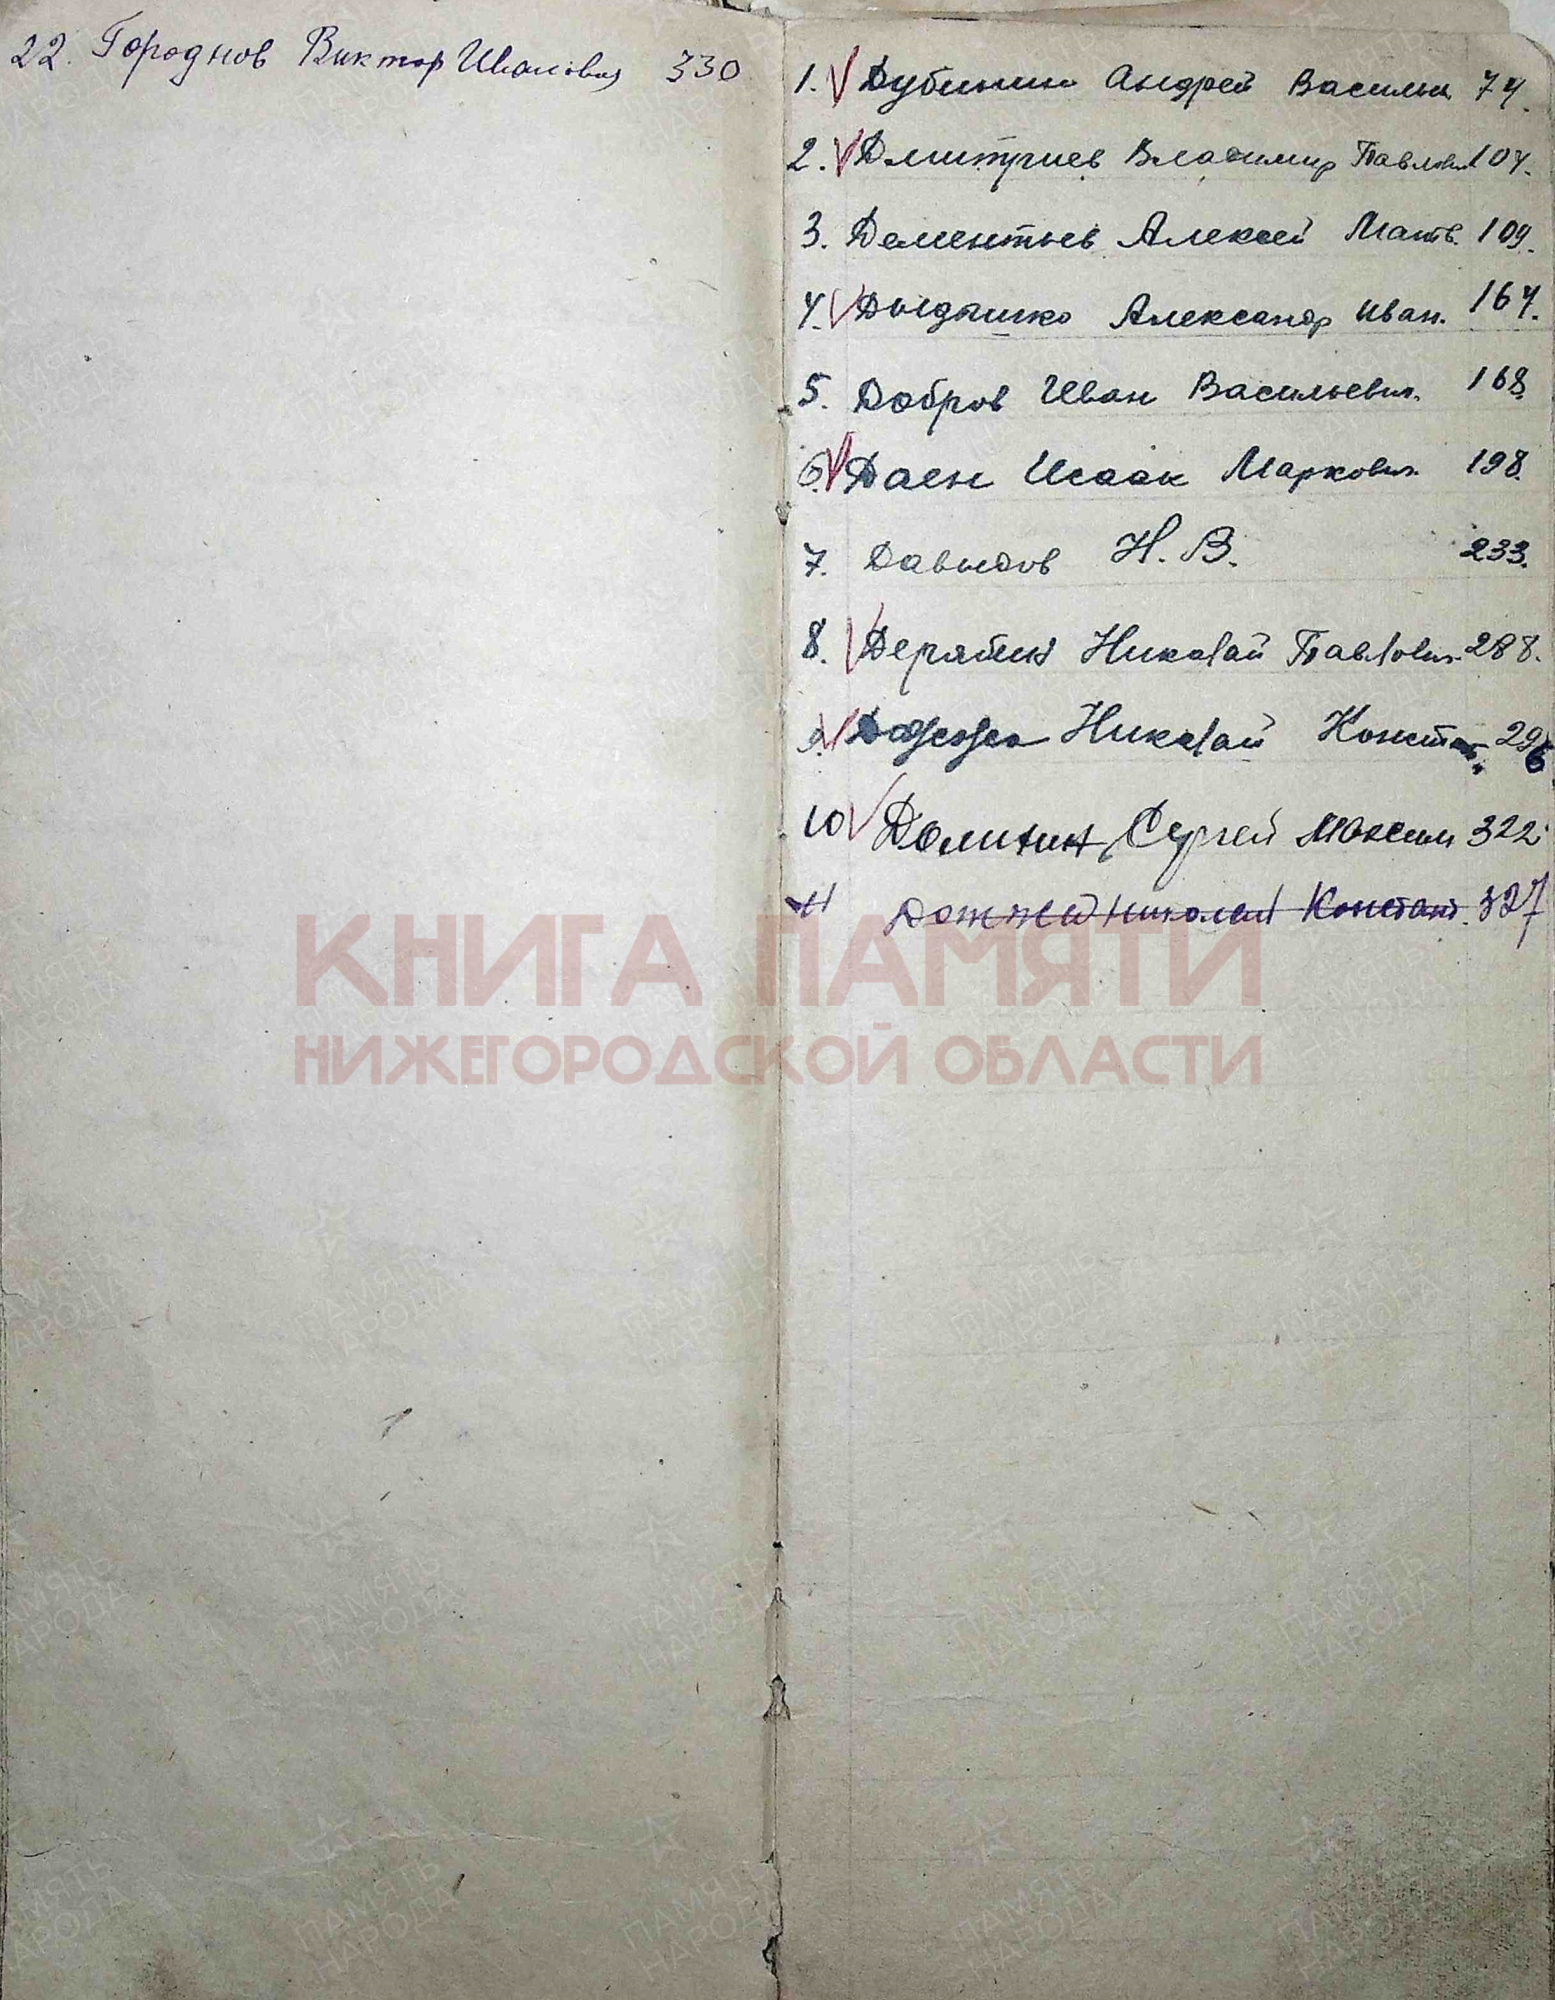 22. Городнов Виктор Иванович 330
1. Дубинин Андрей Василь 74.
2. Дмитриев Владимир Павлов 104.
3. Дементьев Алексей Матв. 109.
4. Александр Иван. 164.
5. Добров Иван Васильевич. 168.
6. Даен Исаак Маркович. 198.
7. Давыдов Н. В. 233.
8. Дерябин Николай Павлович. 288.
9. Николай Конст 296
10 Долинин Сергей Максим 322
11 Николай Констант. 327
КНИГА ПАМЯТИ
НИЖЕГОРОДСКОЙ ОБЛАСТИ
ПАМЯТЬ
НАРОДА